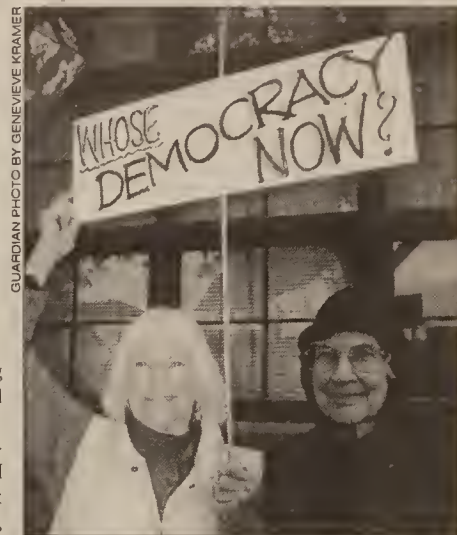 GUARDIAN PHOTO BY GENEVIEVE KRAMER
WHOSE
DEMOCRACY
NOW?